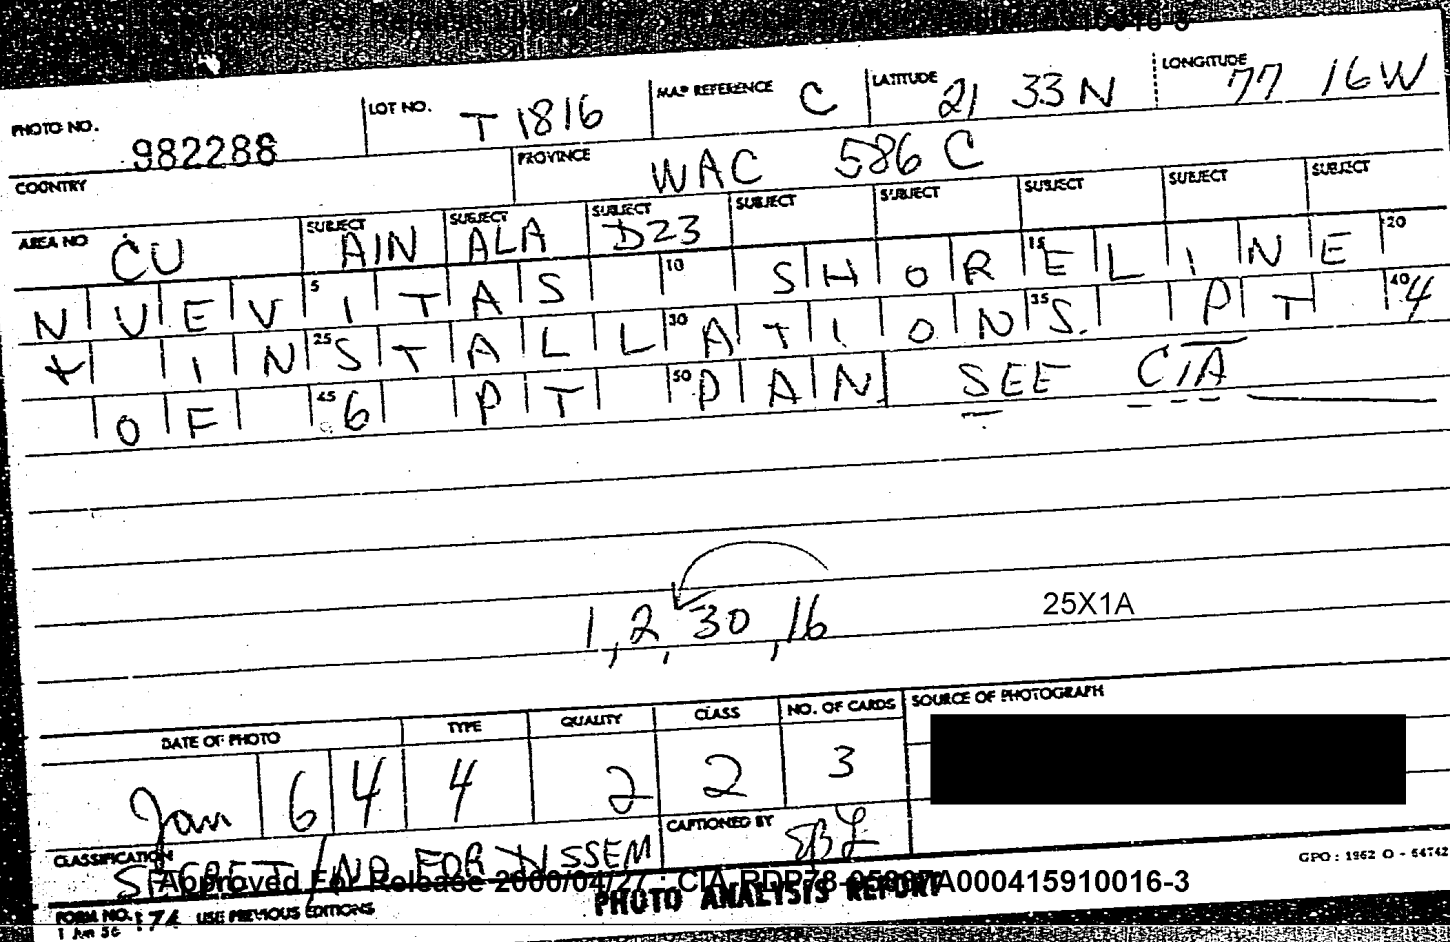 Approved For Release 2000/04/27 : CIA-RDP78-05887A000415910016-3
PHOTO NO. 982286 LOT NO. T 1816 MAP REFERENCE C LATITUDE 21 33 N LONGITUDE 77 16 W
COUNTRY PROVINCE WAC 586 C
AREA NO CU SUBJECT AIN SUBJECT ALA SUBJECT D23 SUBJECT SUBJECT SUBJECT SUBJECT SUBJECT
NUEVITAS SHORELINE
+ INSTALLATIONS. PT 4
OF 6 PT PAN. SEE CIA
1, 2, 30, 16
25X1A
DATE OF PHOTO TYPE QUALITY CLASS NO. OF CARDS SOURCE OF PHOTOGRAPH
Jan 6 4 4 2 2 3
CAPTIONED BY
CLASSIFICATION SECRET/NO FOR DISSEM
GPO : 1962 O - 64742
Approved For Release 2000/04/27 : CIA-RDP78-05887A000415910016-3
PHOTO ANALYSIS REPORT
FORM NO. 174 USE PREVIOUS EDITIONS
1 Jun 56